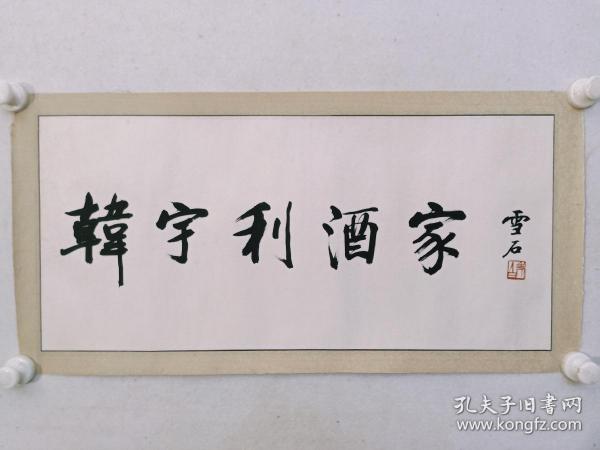 韓宇利酒家
雪石
孔夫子旧書网
www.kongfz.com